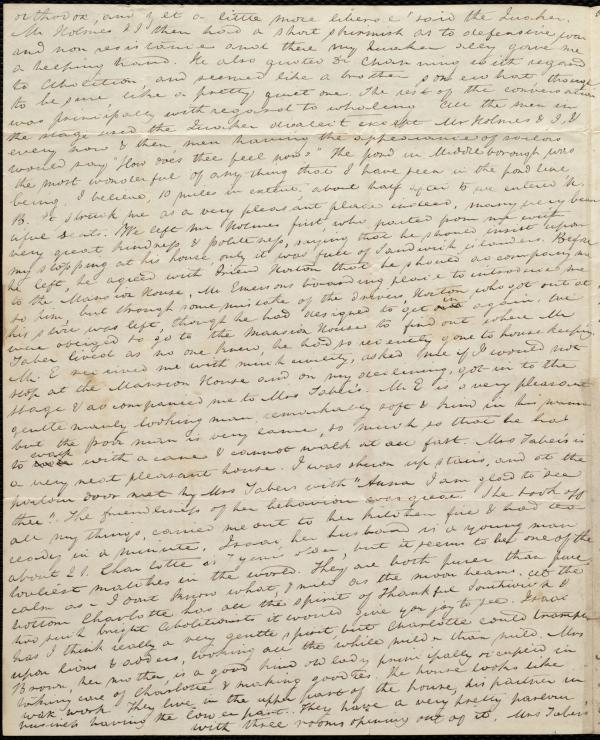 orthodox, and yet a little more liberal" said the Quaker.
Mr Holmes & I then had a short skirmish as to defensive war
and non resistance and there my Quaker ally gave me
a helping hand. He also quoted Dr Channing with regard
to Abolition and seemed like a brother, somewhat though
to be sure, like a pretty quiet one. The rest of the conversation
was principally with regard to whaling. All the men in
the stage used the Quaker dialect except Mr Holmes & I, &
every now & then, men having the appearance of sailors
would say "How does thee feel now?" The pond in Middleborough was
the most wonderful of any thing that I have seen in the pond line
being, I believe, 10 miles in extent. about half after 5 we entered N.
B. It struck me as a very pleasant place indeed, many very beau
tiful seats. We left Mr Holmes first, who parted from me with
very great kindness & politeness, saying that he should insist upon
my stopping at his house, only it was full of Sandwich islanders. Before
he left, he agreed with Friend Horton that he should accompany me
to the Mansion House, Mr Emersons boarding place to introduce me
to him, but through some mistake of the drivers, Horton who got out at
his store was left, though he had designed to get in again. We
were obliged to go to the Mansion House to find out where Mr
Taber lived as no one knew, he had so recently gone to housekeeping.
Mr. E received me with much civility, asked me if I would not
stop at the Mansion House and on my declining, got in to the
stage & accompanied me to Mrs Taber's. Mr. E is a very pleasant
gentle manly looking man, remarkably soft & kind in his manner
but the poor man is very lame, so much so that he has
to walk with a cane & cannot walk at all fast. Mrs Taber's is
a very neat pleasant house. I was shewn up stairs, and at the
parlour door met by Mrs Tabers with "Anna I am glad to see
thee". The friendliness of her behaviour was great. She took off
all my things, carried me out to her kitchen fire & had tea
ready in a minute. Isaac her husband is a young man
about 21. Charlotte is 7 years older, but it seems to be one of the
loveliest matches in the world. They are both purer than pure
calm as - I dont know what, & mild as the moon beams. At the
bottom Charlotte has all the spirit of Thankful Southwick &
two such bright Abolitionists it would give you joy to see. Isaac
has I think really a very gentle spirit but Charlotte could trample
upon lions & adders, looking all the while milder than mild. Mrs
Brown her mother, is a good kind old lady principally occupied in
taking care of Charlotte & making goodies. The house looks like
wax work. They live in the upper part of the house, his partner in
business having the lower part. They have a very pretty parlour
with three rooms opening out of it. Mrs Taber's